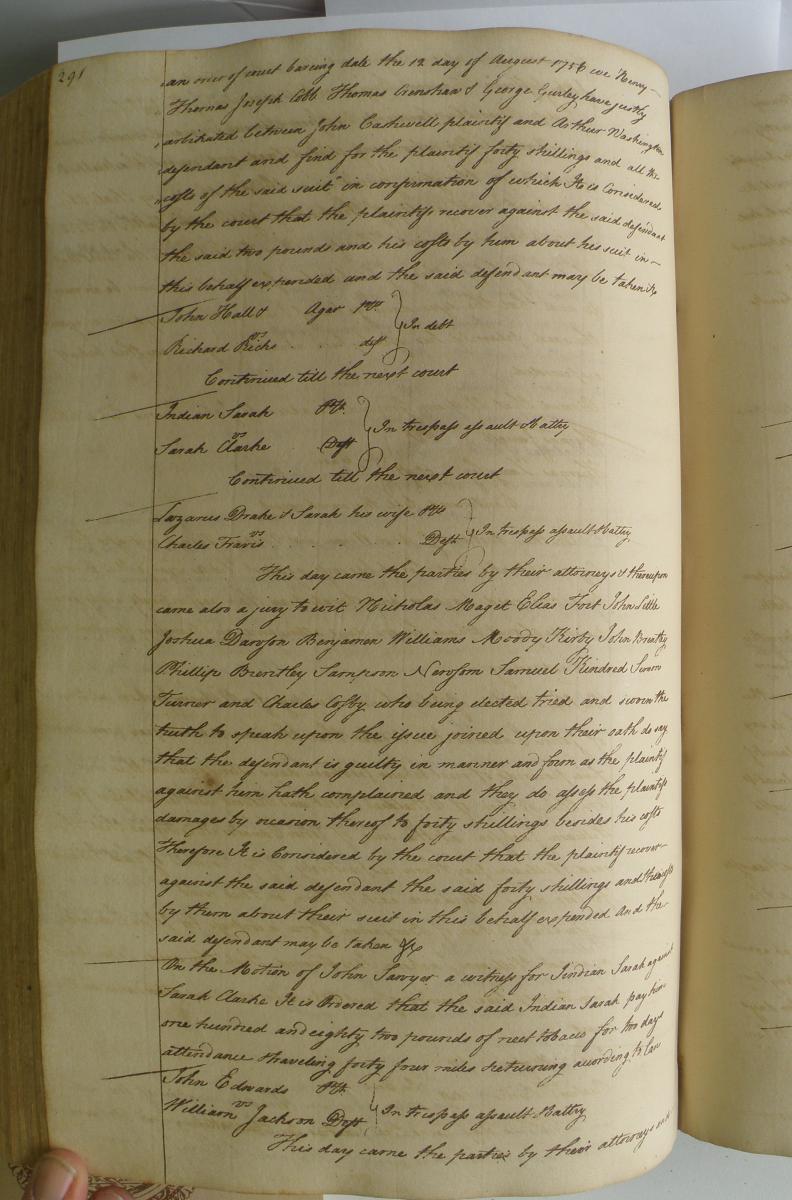 291
an order of court bearing date the 12 day of August 1756 we Henry
Thomas Joseph Cobb Thomas Crenshaw & George Gurley have justly
arbitrated between John Cashwell plaintif and Arthur Washington
defendant and find for the plaintif forty shillings and all the
costs of the said suit" in confirmation of which It is Considered
by the court that the plaintiff recover against the said defendant
the said two pounds and his costs by him about his suit in
this behalf expended and the said defendant may be taken &c
John Hall & Agar Plts
vs } In debt
Richard Ricks deft
Continued till the next court
Indian Sarah Plt
vs } In trespass assault & battry
Sarah Clarke Deft
Continued till the next court
Lazarus Drake & Sarah his wife Plts
vs } In trespass assault & battry
Charles Travis Deft
This day came the parties by their attorneys & thereupon
came also a jury to wit Nicholas Maget Elias Fort John Little
Joshua Dawson Benjamen Williams Moody Kirby John Brentley
Phillip Brentley Sampson Newsom Samuel Kindred Simon
Turner and Charles Cosby who being elected tried and sworn the
truth to speak upon the issue joined upon their oath do say
that the defendant is guilty in manner and form as the plaintif
against him hath complained and they do assess the plaintiffs
damages by occasion thereof to forty shillings besides his costs
Therefore It is Considered by the court that the plaintif recover
against the said defendant the said forty shillings and
by them about their suit in this behalf expended And the
said defendant may be taken &c
On the Motion of John Sawyer a witness for Indian Sarah against
Sarah Clarke It is Ordered that the said Indian Sarah pay him
one hundred and eighty two pounds of neet tobacco for two days
attendance & traveling forty four miles & returning according to law
John Edwards Plt
vs } In trespass assault & battry
William Jackson Deft
This day came the parties by their attorneys and